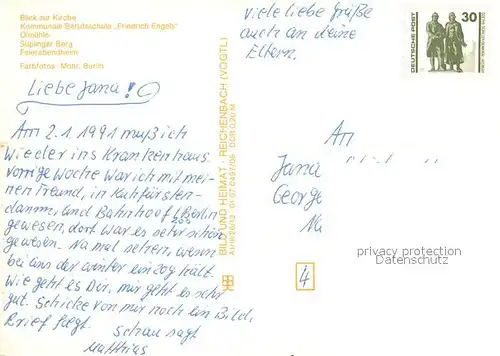 Blick zur Kirche
Kommunale Berufsschule „Friedrich Engels"
Ölmühle
Süplinger Berg
Feierabendheim
Farbfotos: Mohr, Berlin
Liebe Jana!
Am 2.1.1991 muß ich
wieder ins Krankenhaus.
vorrige Woche war ich mit mei-
nen Freund, in Kuhfürsten-
damm, und Bahnhoof Berlin
Zoo
gewesen, dort war es sehr schön
gewesen. Na mal sehen, wenn
bei uns der Winter einzog hält.
Wie geht es Dir, mir geht es sehr
gut. Schicke von mir noch ein Bild,
Brief liegt.
schau sagt
Matthias
BILD UND HEIMAT · REICHENBACH (VOGTL)
A1/H 26/13 01 07 0497/06 DDR 0,20 M
Viele liebe Grüße
auch an deine
Eltern.
DEUTSCHE POST
30
An
Jana
George
Na
4
privacy protection
Datenschutz